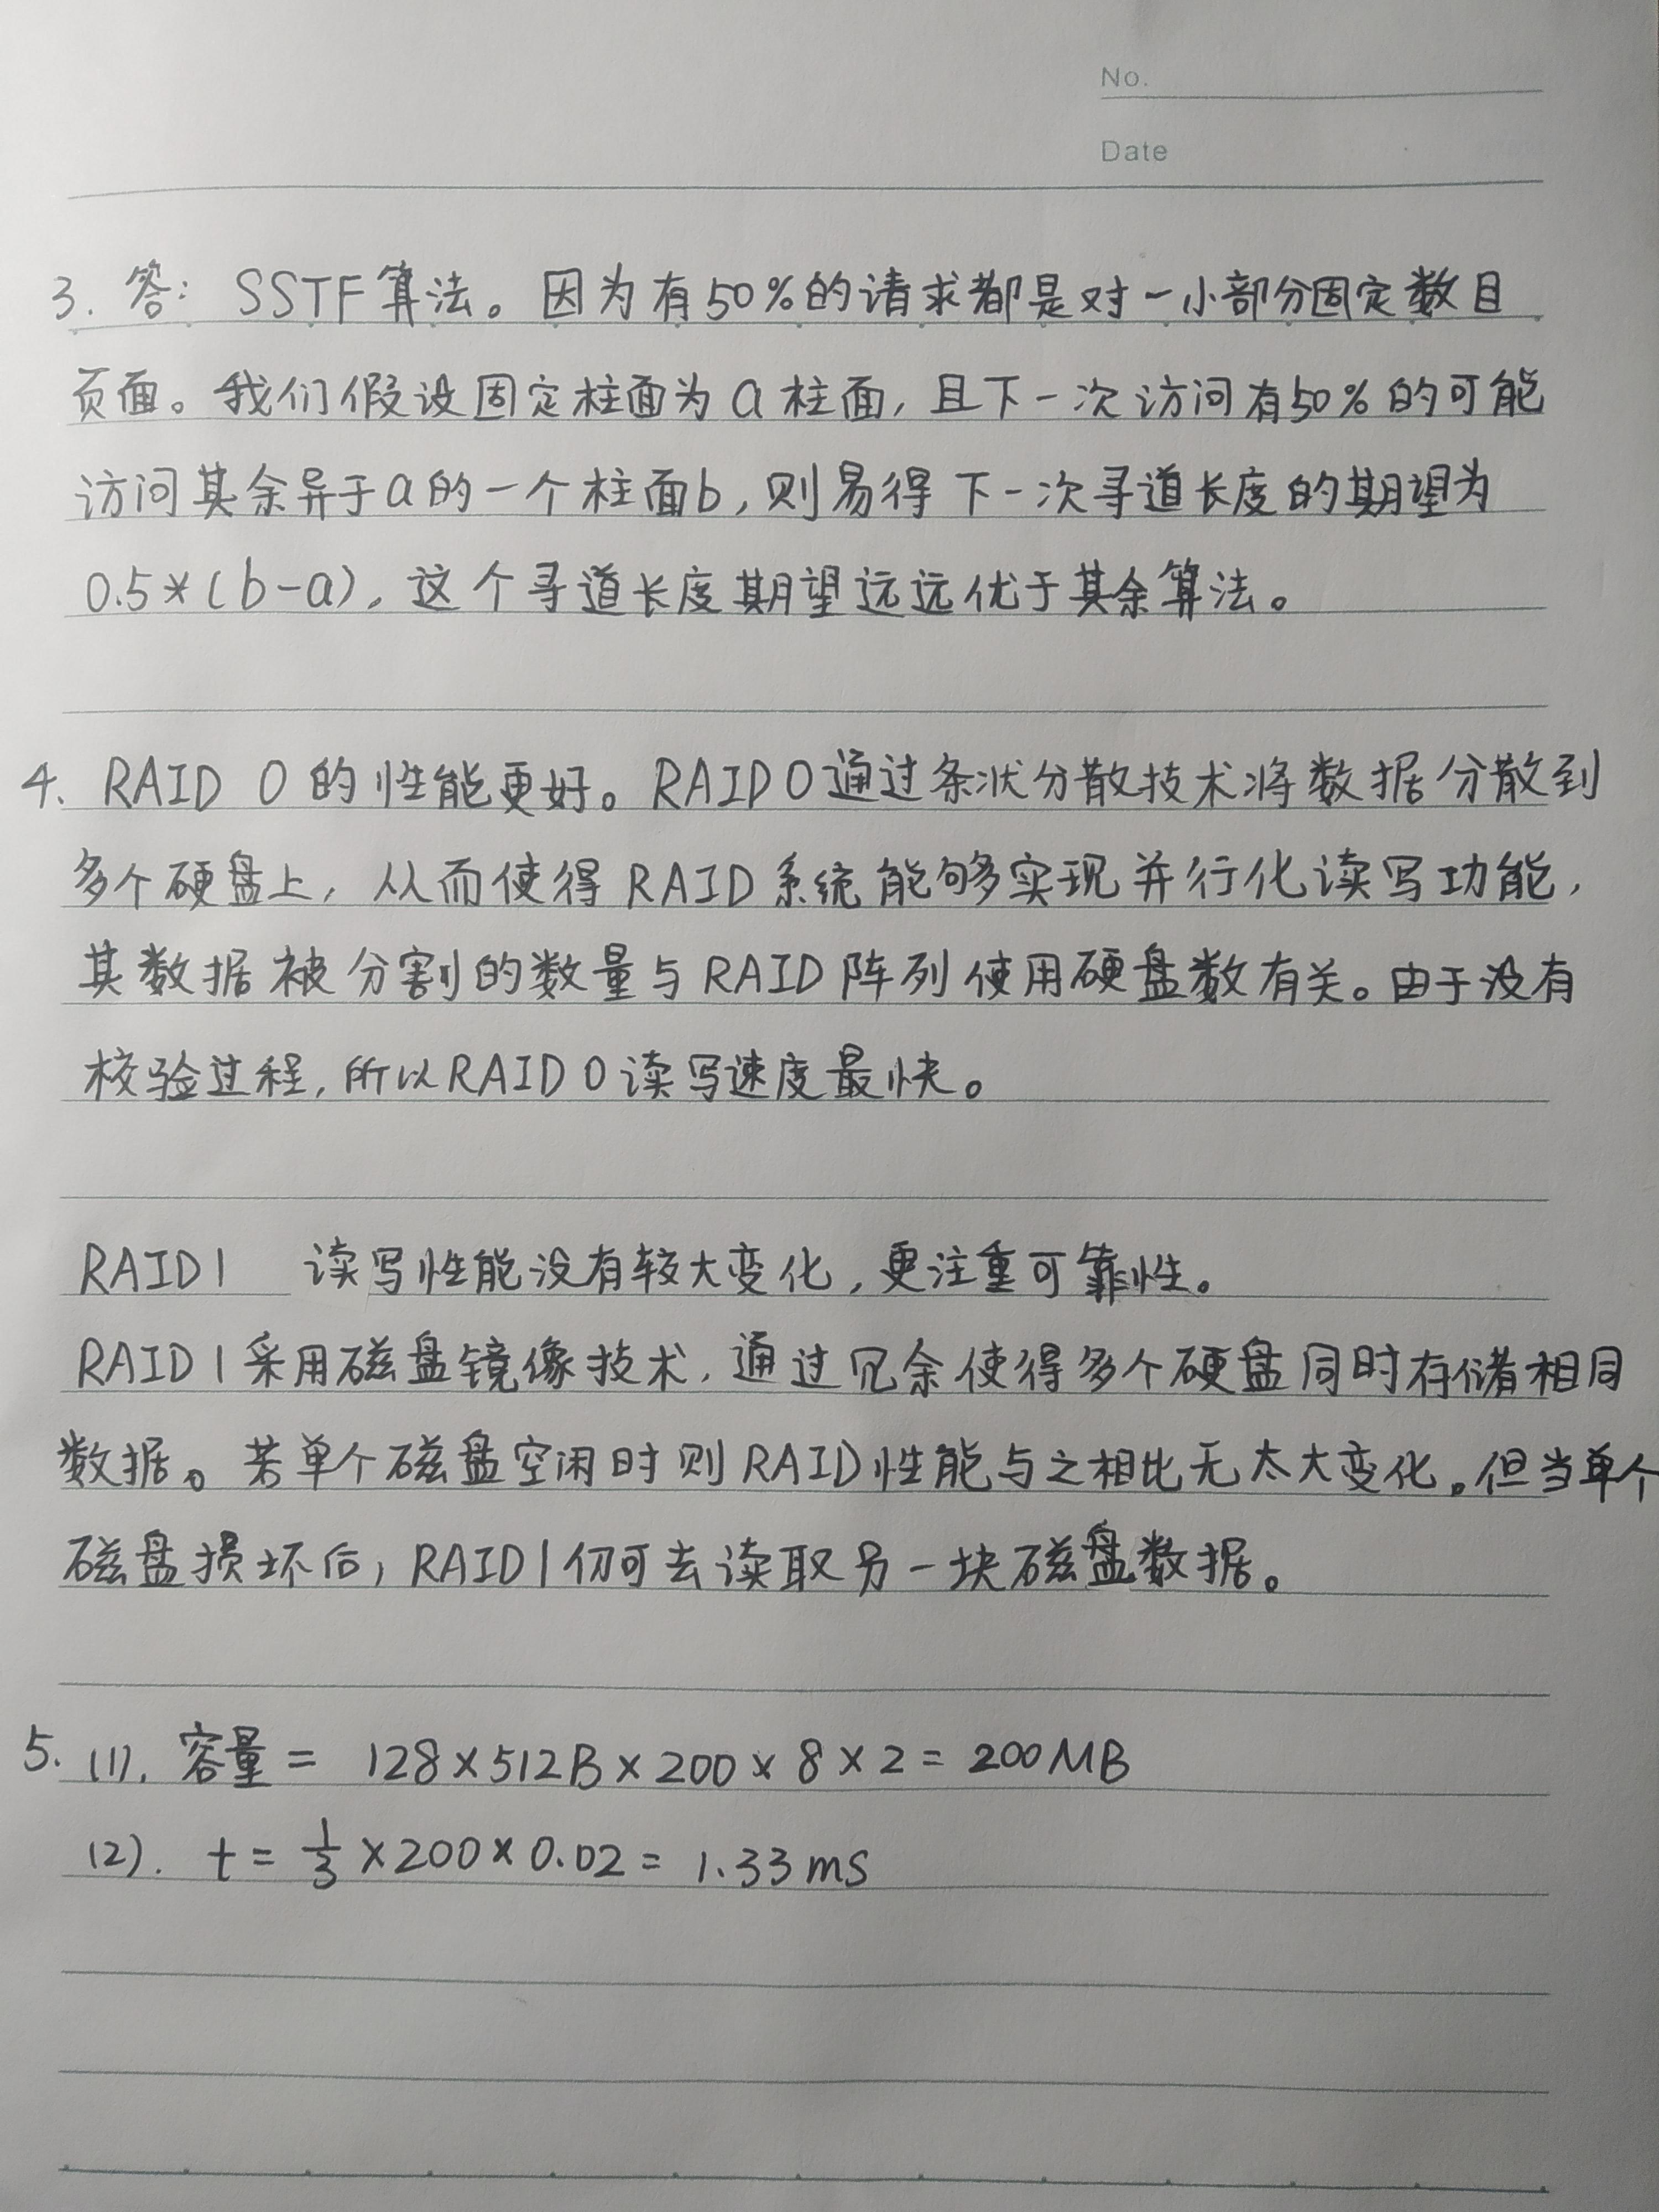 No.
Date
3. 答: SSTF算法。因为有50%的请求都是对一小部分固定数目
页面。我们假设固定柱面为a柱面, 且下一次访问有50%的可能
访问其余异于a的一个柱面b, 则易得下一次寻道长度的期望为
0.5*(b-a), 这个寻道长度期望远远优于其余算法。
4. RAID 0 的性能更好。RAID0通过条状分散技术将数据分散到
多个硬盘上, 从而使得RAID系统能够实现并行化读写功能,
其数据被分割的数量与RAID阵列使用硬盘数有关。由于没有
校验过程, 所以RAID0读写速度最快。
RAID1 读写性能没有较大变化, 更注重可靠性。
RAID1采用磁盘镜像技术, 通过冗余使得多个硬盘同时存储相同
数据。若单个磁盘空闲时则RAID性能与之相比无太大变化。但当单个
磁盘损坏后, RAID1仍可去读取另一块磁盘数据。
5. (1). 容量 = 128×512B×200×8×2 = 200MB
(2). t = 1/3 ×200×0.02 = 1.33ms